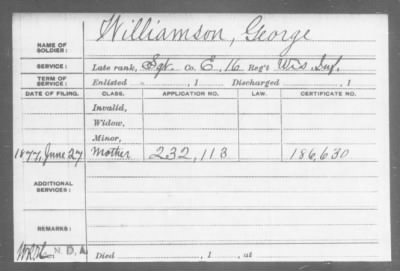 NAME OF SOLDIER: Williamson, George
SERVICE: Late rank, Sgt. Co. E, 16 Reg't Wis Inf.
TERM OF SERVICE: Enlisted , 1 Discharged , 1
DATE OF FILING. CLASS. APPLICATION NO. LAW. CERTIFICATE NO.
Invalid,
Widow,
Minor,
1877, June 27 Mother 232,113 186,630
ADDITIONAL SERVICES:
REMARKS:
N.D.A. Died , 1 , at